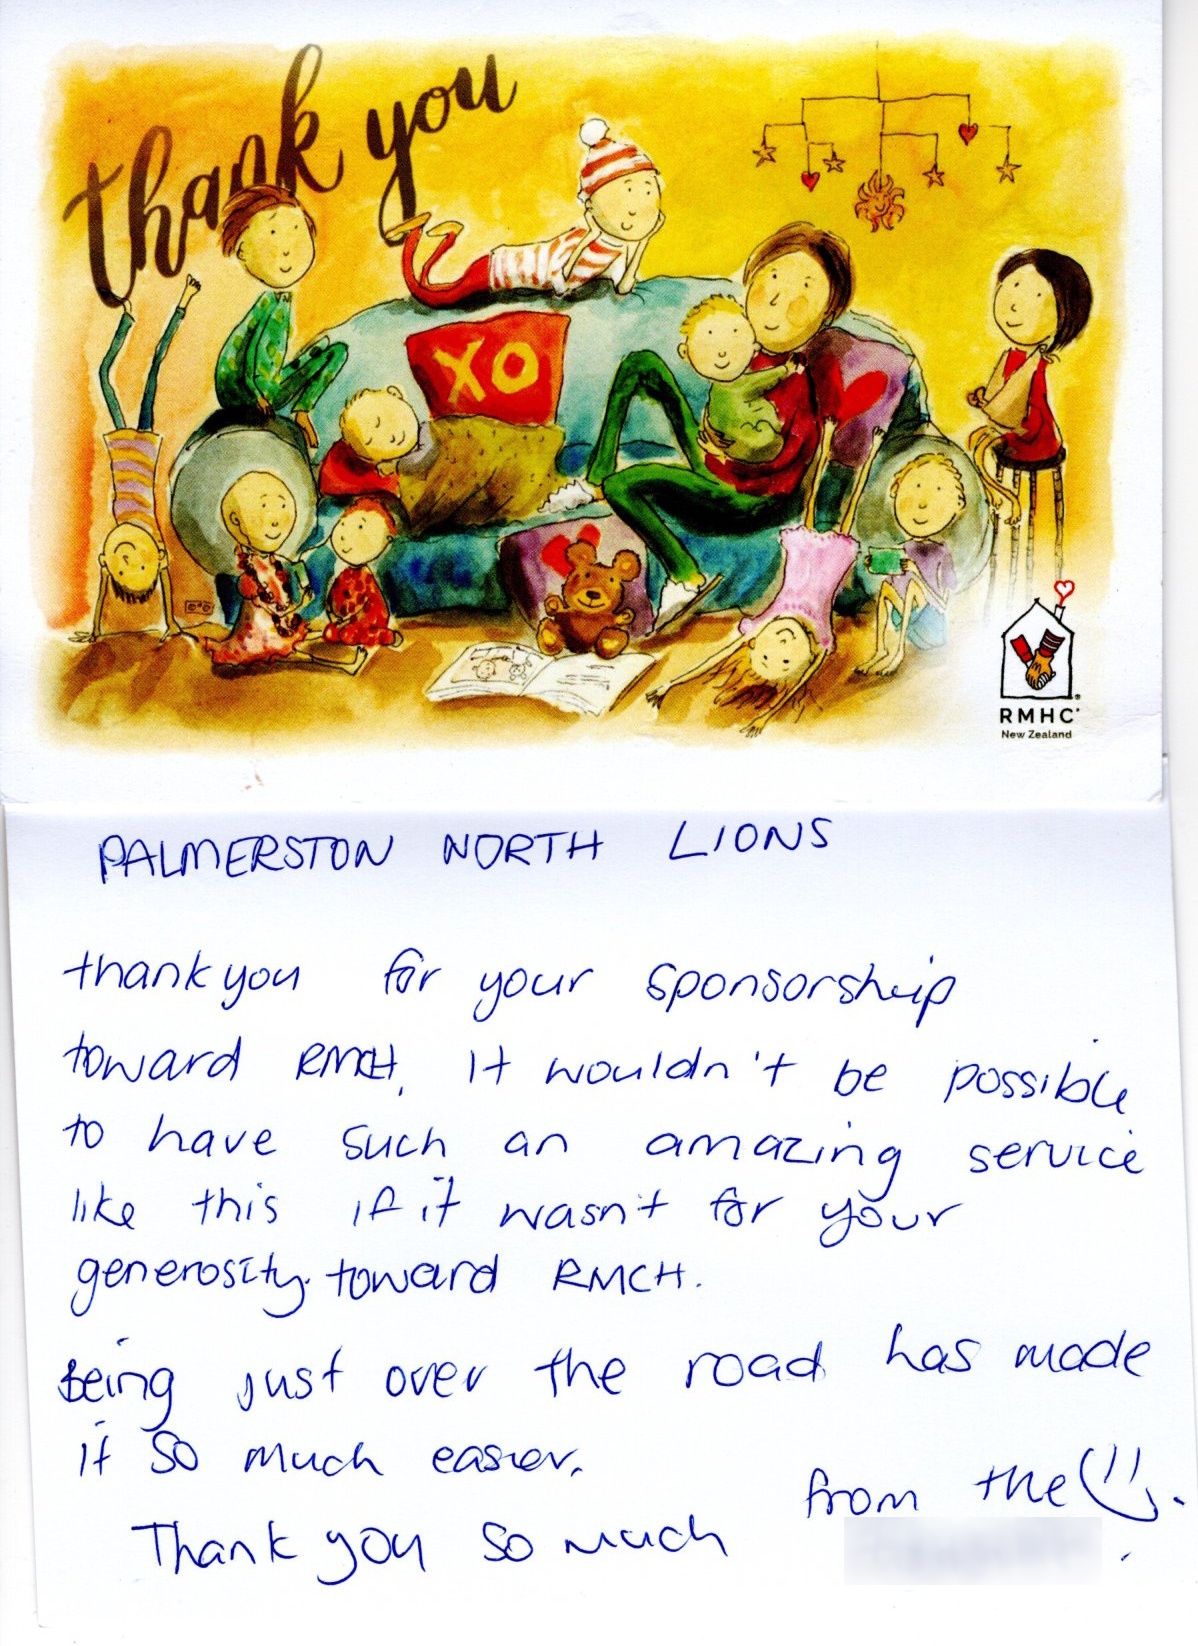 thank you
XO
RMHC®
New Zealand
PALMERSTON NORTH LIONS
thank you for your sponsorship
toward RMCH. It wouldn't be possible
to have such an amazing service
like this if it wasn't for your
generosity. toward RMCH.
Being just over the road has made
it so much easier.
from the
Thank you so much